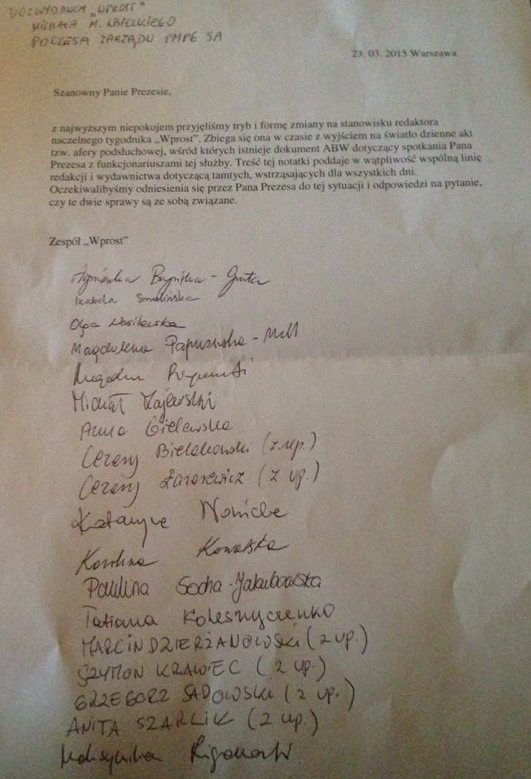 DO WYDAWCY „WPROST"
MICHAŁA M. LISIECKIEGO
PREZESA ZARZĄDU PMPG SA
23. 03. 2015 Warszawa
Szanowny Panie Prezesie,
z najwyższym niepokojem przyjęliśmy tryb i formę zmiany na stanowisku redaktora
naczelnego tygodnika „Wprost”. Zbiega się ona w czasie z wyjściem na światło dzienne akt
tzw. afery podsłuchowej, wśród których istnieje dokument ABW dotyczący spotkania Pana
Prezesa z funkcjonariuszami tej służby. Treść tej notatki poddaje w wątpliwość wspólną linię
redakcji i wydawnictwa dotyczącą tamtych, wstrząsających dla wszystkich dni.
Oczekiwalibyśmy odniesienia się przez Pana Prezesa do tej sytuacji i odpowiedzi na pytanie,
czy te dwie sprawy są ze sobą związane.
Zespół „Wprost”
Izabela Smolińska
Olga Wasilewska
Magdalena Papuzińska - Mill
Michał Majewski
Anna Gielewska
Cezary Bielakowski (z up.)
Cezary Łazarewicz (z up.)
Katarzyna Nowicka
Karolina Kowalska
Paulina Socha-Jakubowska
Tatiana Kolesnychenko
MARCIN DZIERŻANOWSKI (z up.)
SZYMON KRAWIEC (z up.)
GRZEGORZ SADOWSKI (z up.)
ANITA SZARLIK (z up.)
Maksymilian Rigamonti